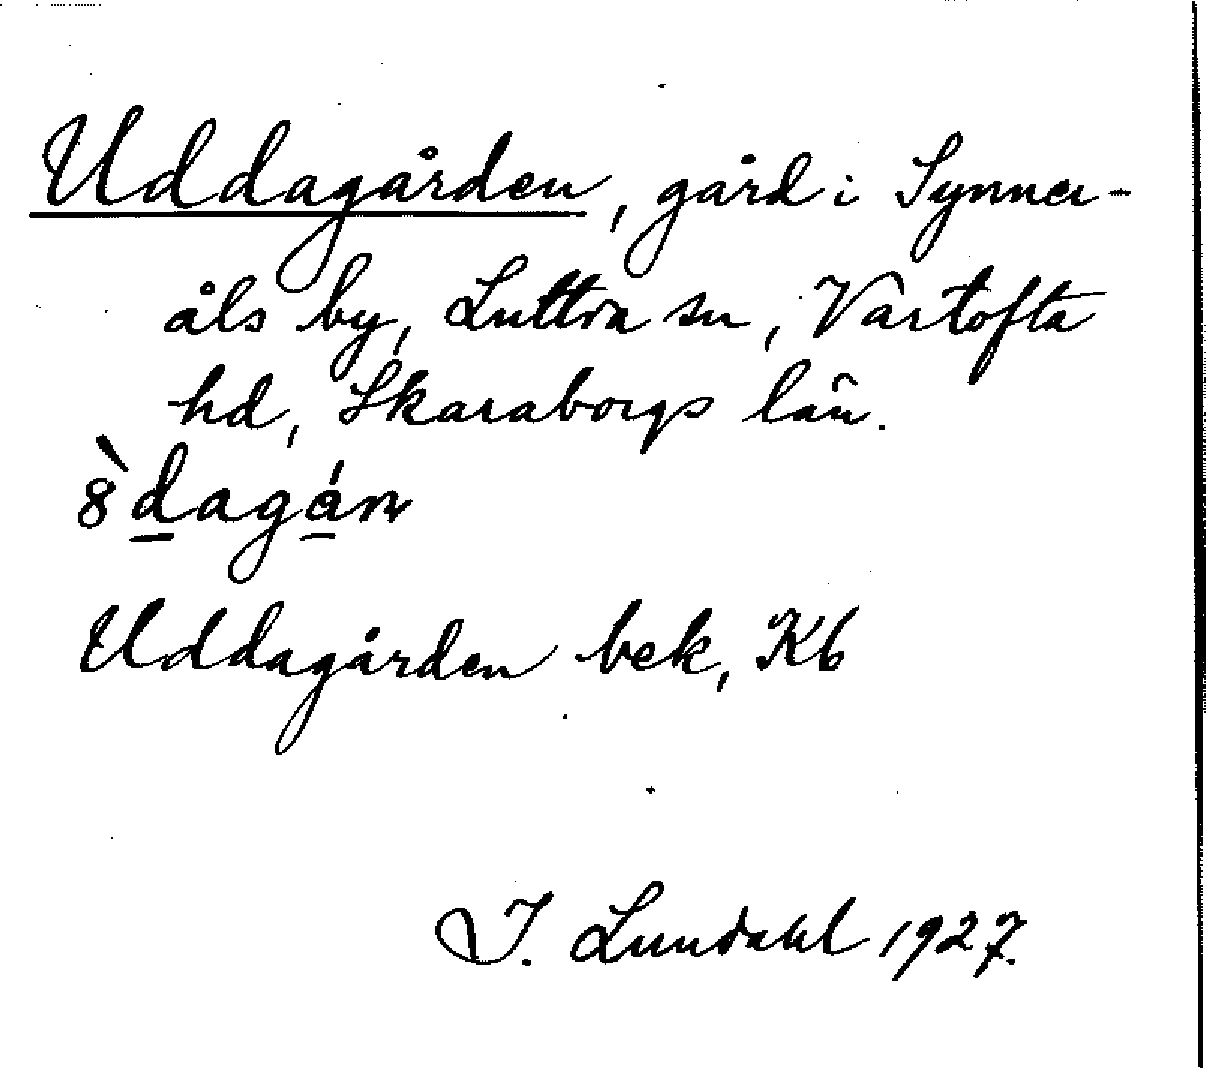 Uddagården, gård i Synner-
åls by, Luttra sn, Vartofta
hd, Skaraborgs län.
8̀dagán
Uddagården bek, Kb
I. Lundahl 1927.